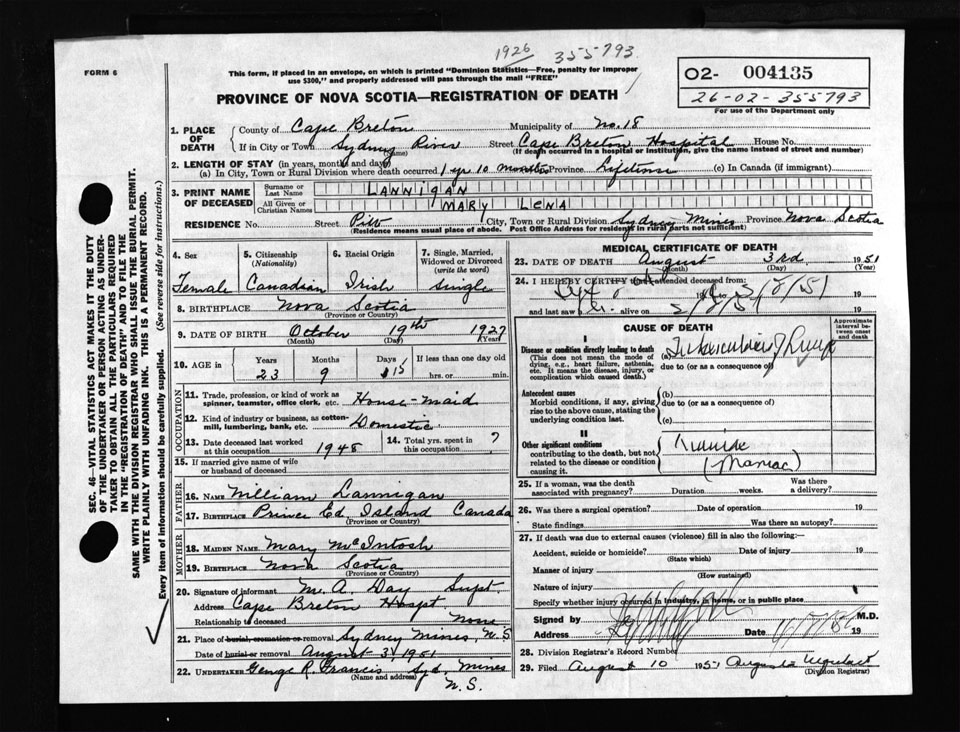 1926 355793
FORM 6
This form, if placed in an envelope, on which is printed "Dominion Statistics—Free, penalty for improper
use $300," and properly addressed will pass through the mail "FREE"
O2- 004135
26-02-355793
For use of the Department only
PROVINCE OF NOVA SCOTIA—REGISTRATION OF DEATH
1. PLACE OF DEATH
County of Cape Breton Municipality of No. 18
If in City or Town Sydney River (Name) Street Cape Breton Hospital House No.
(If death occurred in a hospital or institution, give the name instead of street and number)
2. LENGTH OF STAY (in years, months and days)
(a) In City, Town or Rural Division where death occurred 1 yr 10 months Province Lifetime (c) In Canada (if immigrant)
3. PRINT NAME OF DECEASED
Surname or Last Name LANNIGAN
All Given or Christian Names MARY LENA
RESIDENCE No. Street Pitt City, Town or Rural Division Sydney Mines Province Nova Scotia
(Residence means usual place of abode. Post Office Address for residents in rural parts not sufficient)
4. Sex
Female
5. Citizenship
(Nationality)
Canadian
6. Racial Origin
Irish
7. Single, Married,
Widowed or Divorced
(write the word)
Single
8. BIRTHPLACE Nova Scotia
(Province or Country)
9. DATE OF BIRTH October 19th 1927
(Month) (Day) (Year)
10. AGE in
Years Months Days If less than one day old
23 9 15 hrs. or min.
OCCUPATION
11. Trade, profession, or kind of work as
spinner, teamster, office clerk, etc. House-maid
12. Kind of industry or business, as cotton-
mill, lumbering, bank, etc. Domestic
13. Date deceased last worked
at this occupation 1948
14. Total yrs. spent in
this occupation ?
15. If married give name of wife
or husband of deceased
FATHER
16. NAME William Lannigan
17. BIRTHPLACE Prince Ed Island Canada
(Province or Country)
MOTHER
18. MAIDEN NAME Mary McIntosh
19. BIRTHPLACE Nova Scotia
(Province or Country)
20. Signature of informant M. A. Day Supt.
Address Cape Breton Hospt.
Relationship to deceased None
21. Place of burial, cremation or removal Sydney Mines, N.S
Date of burial or removal August 3, 1951
22. UNDERTAKER George R. Francis Syd. Mines
(Name and address) N.S.
MEDICAL CERTIFICATE OF DEATH
23. DATE OF DEATH August 3rd 1951
(Month) (Day) (Year)
24. I HEREBY CERTIFY that I attended deceased from
19 3/8/51 19
and last saw alive on 2/8/51 19
CAUSE OF DEATH
Approximate
interval be-
tween onset
and death
I
Disease or condition directly leading to death
(This does not mean the mode of
dying, e.g., heart failure, asthenia,
etc. It means the disease, injury, or
complication which caused death.)
(a) Tuberculosis of Lungs
due to (or as a consequence of)
Antecedent causes
Morbid conditions, if any, giving
rise to the above cause, stating the
underlying condition last.
(b)
due to (or as a consequence of)
(c)
II
Other significant conditions
contributing to the death, but not
related to the disease or condition
causing it.
(Maniac)
25. If a woman, was the death
associated with pregnancy? Duration weeks. Was there
a delivery?
26. Was there a surgical operation? Date of operation 19
State findings Was there an autopsy?
27. If death was due to external causes (violence) fill in also the following:—
Accident, suicide or homicide? Date of injury 19
(State which)
Manner of injury
(How sustained)
Nature of injury
Specify whether injury occurred in industry, in home, or in public place
Signed by M.D.
Address Date 19
28. Division Registrar's Record Number
29. Filed August 10 1951 Augusta
(Division Registrar)
SEC. 46—VITAL STATISTICS ACT MAKES IT THE DUTY
OF THE UNDERTAKER OR PERSON ACTING AS UNDER-
TAKER TO OBTAIN ALL THE PARTICULARS REQUIRED
IN THE "REGISTRATION OF DEATH" AND TO FILE THE
SAME WITH THE DIVISION REGISTRAR WHO SHALL ISSUE THE BURIAL PERMIT.
WRITE PLAINLY WITH UNFADING INK. THIS IS A PERMANENT RECORD.
Every item of information should be carefully supplied. (See reverse side for instructions.)